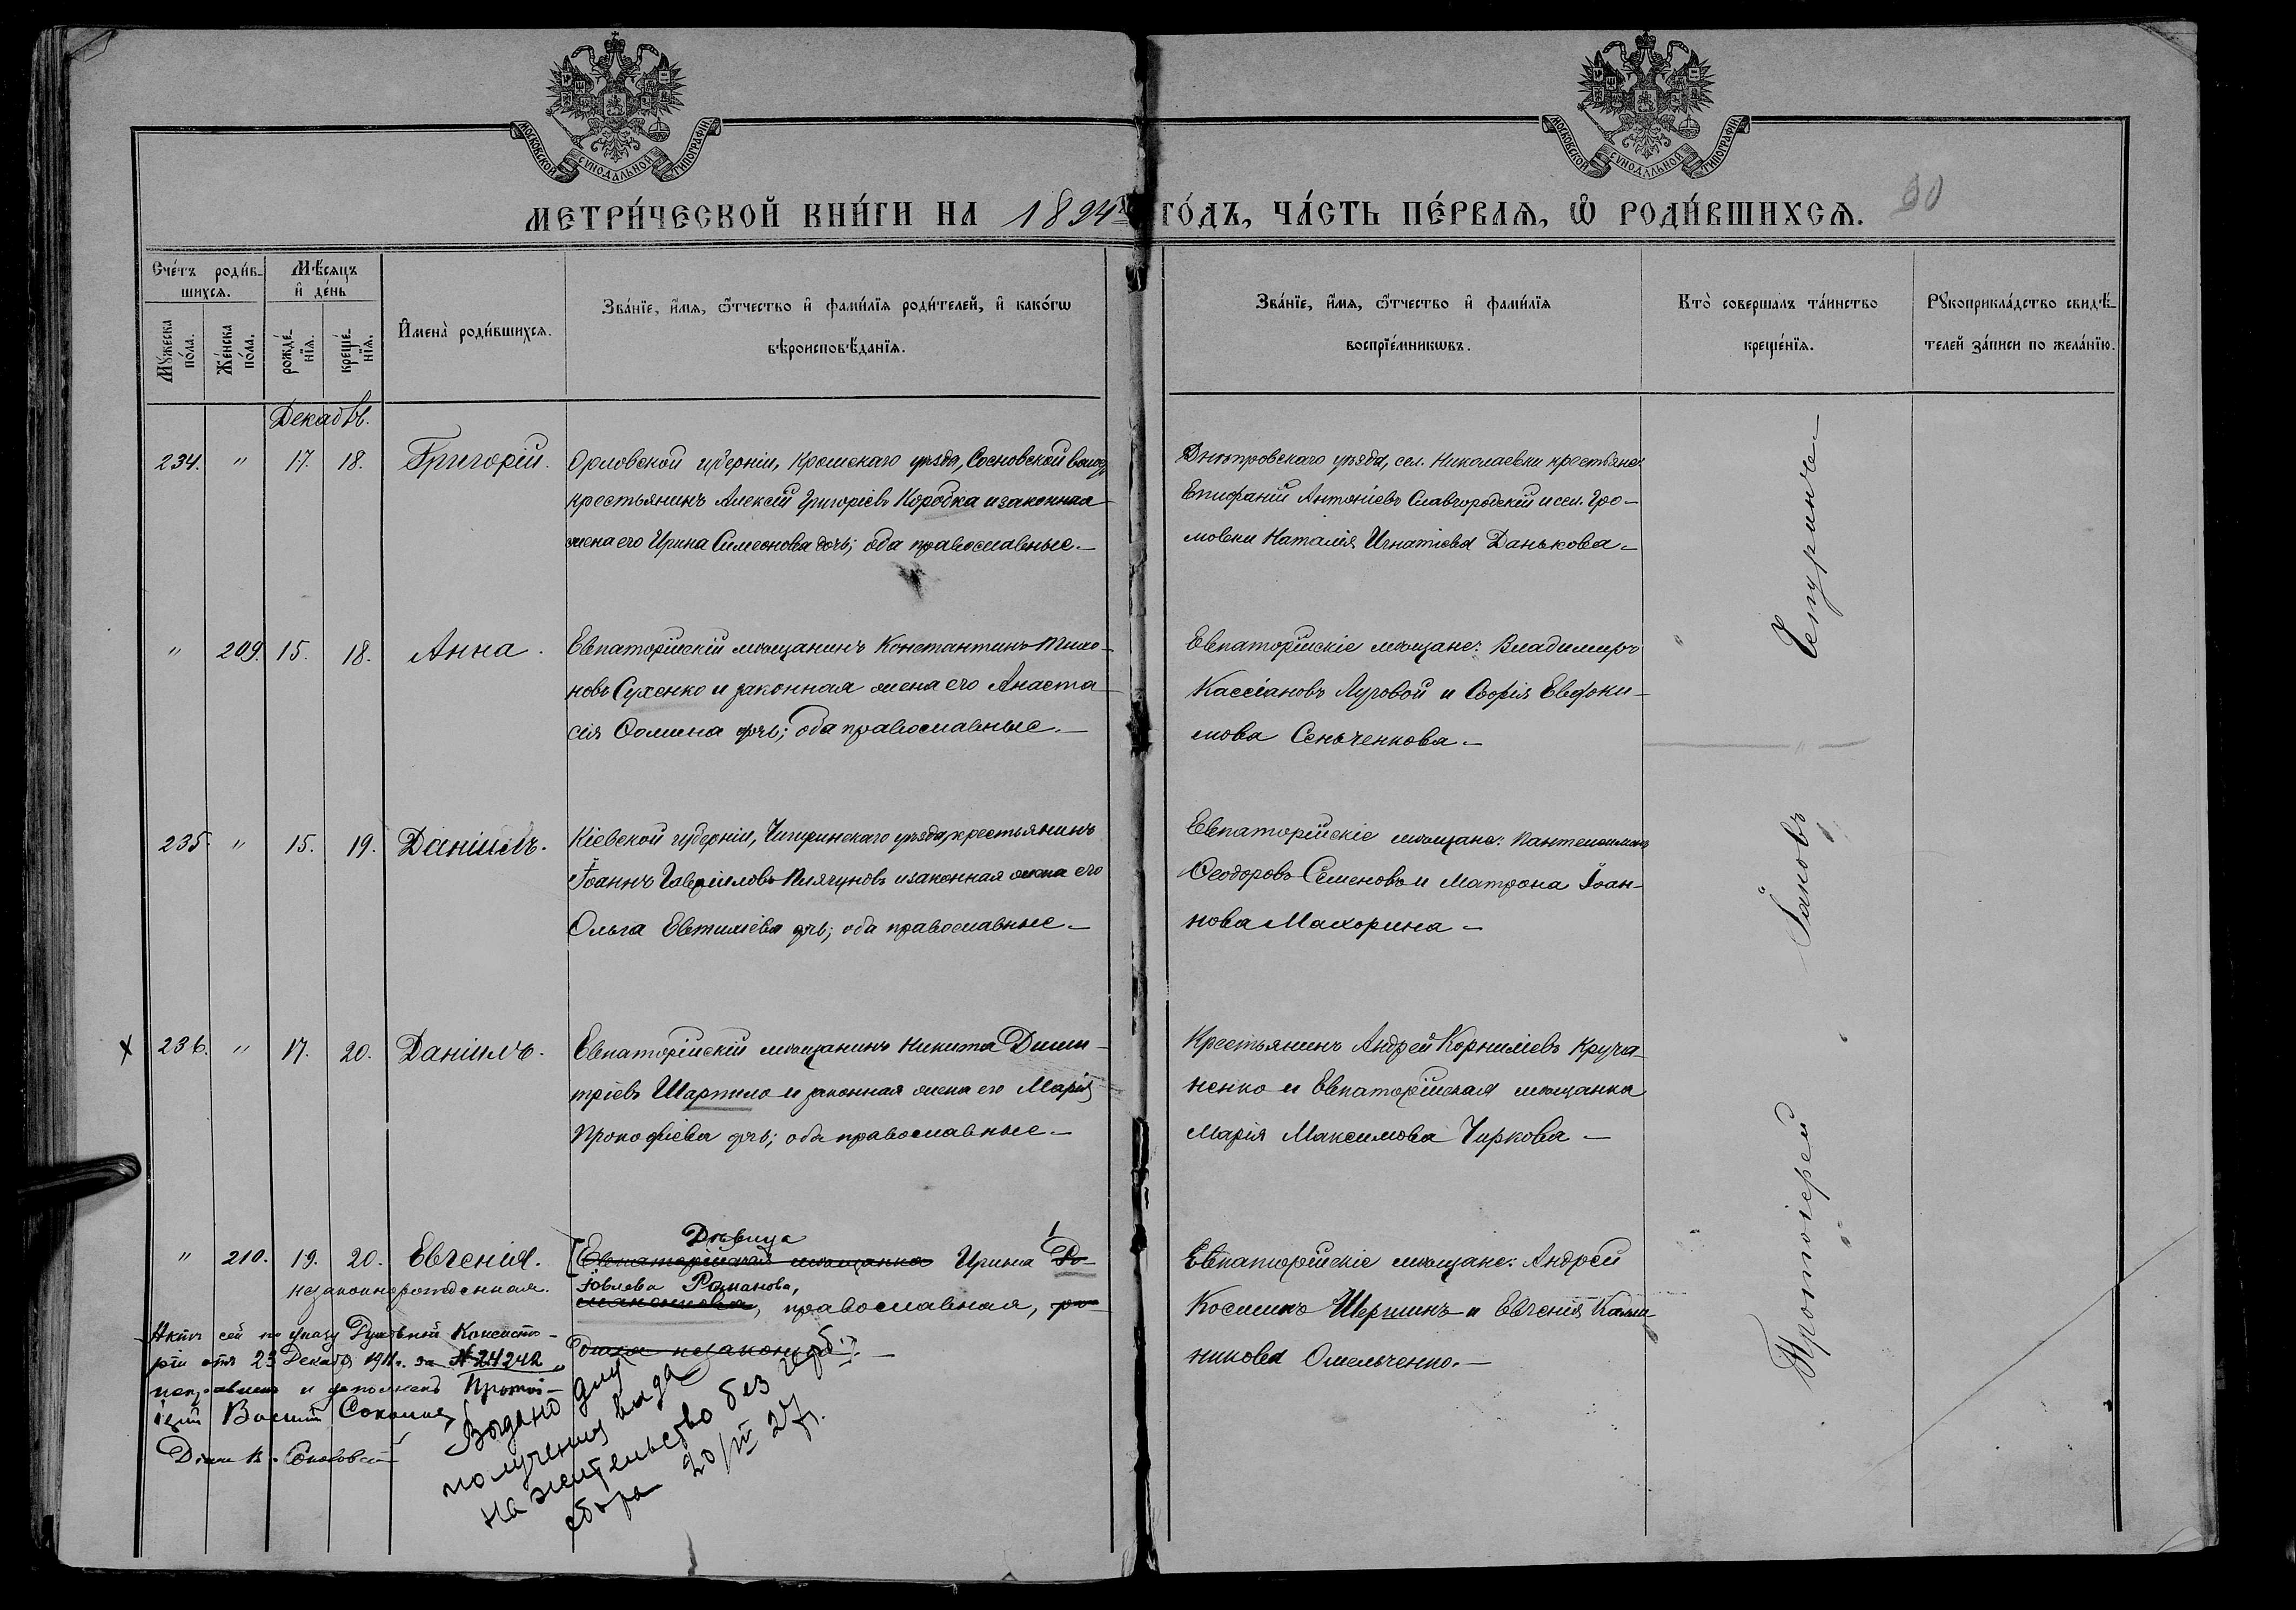 МОСКОВСКОЙ СѴНОДАЛЬНОЙ ТИПОГРАФІИ.
МОСКОВСКОЙ СѴНОДАЛЬНОЙ ТИПОГРАФІИ.
МЕТРИ́ЧЕСКОЙ КНИ́ГИ НА 1894й ГО́ДЪ, ЧА́СТЬ ПЕ́РВАЯ, Ѡ РОДИ́ВШИХСЯ. 30
Сче́тъ роди́в-
шихся.
Мѣ́сяцъ
и҆ де́нь
Мꙋ́жеска по́ла.
Же́нска по́ла.
рожде́-
нїѧ.
креще́-
нїѧ.
И҆мена̀ роди́вшихсѧ.
Зва́нїе, и҆́мѧ, ѻ҆́тчество и҆ фами́лїѧ роди́телей, и҆ како́гѡ
вѣроисповѣ́данїѧ.
Зва́нїе, и҆́мѧ, ѻ҆́тчество и҆ фами́лїѧ
воспрїе́мникѡвъ.
Кто̀ соверша́лъ та́инство
креще́нїѧ.
Рꙋкоприкла́дство свидѣ́-
телей за́писи по жела́нїю.
Декабрь.
234. " 17. 18. Григорій. Орловской губерніи, Кромскаго уѣзда, Сосновской волос.
крестьянинъ Алексій Григоріевъ Коробка и законная
жена его Ирина Симеонова дочь; оба православные.—
Днѣпровскаго уѣзда, сел. Николаевки крестьяне:
Епифаній Антоніевъ Славгородскій и сел. Гро-
мовки Наталія Игнатіева Данькова.—
" 209. 15. 18. Анна. Евпаторійскій мѣщанинъ Константинъ Тихо-
новъ Сухенко и законная жена его Анаста-
сія Ѳомина дочь; оба православные.—
Евпаторійскіе мѣщане: Владимиръ
Кассіановъ Луговой и Софія Евфоки-
мова Сенченкова.—
235. " 15. 19. Даніилъ. Кіевской губерніи, Чигиринскаго уѣзда, крестьянинъ
Іоаннъ Гавріиловъ Плячуновъ и законная жена его
Ольга Евтиміева дочь; оба православные.—
Евпаторійскіе мѣщане: Пантелеимонъ
Ѳеодоровъ Семеновъ и Матрона Іоан-
нова Махорина.—
х 236. " 17. 20. Даніилъ. Евпаторійскій мѣщанинъ Никита Дими-
тріевъ Шартило и законная жена его Марія
Прокофіева дочь; оба православные.—
Крестьянинъ Андрей Корниліевъ Круча-
ненко и Евпаторійская мѣщанка
Марія Максимова Чиркова.—
Дѣвица
" 210. 19. 20. Евгенія. Евпаторійская мѣщанка Ирина Ро-
незаконнорожденная.
Іовлева Романова,
православная, ро-
дила незаконно.
Евпаторійскіе мѣщане: Андрей
Косминъ Шершинъ и Евгенія Калин-
никова Омельченко.—
Актъ сей по указу Духовной Консисто-
ріи отъ 23 Декабря 1911г. за № 24242
исправленъ и дополненъ Протоі-
ерей Василій
Выдано для
получения вида
на жительство без герб.
сбора 20/IV 27г.
Протоіерей Іаковъ Чепуринъ